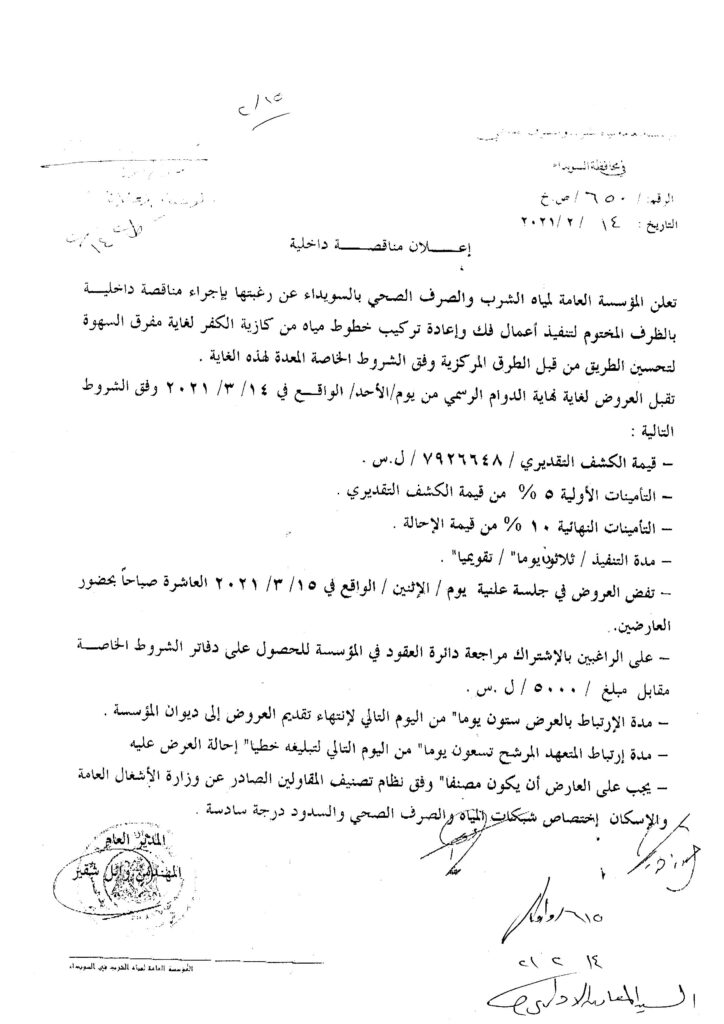 ٢/١٥
في محافظة السويداء
الرقم: / ٦٥٠ / ص.خ
التاريخ : ١٤ / ٢ / ٢٠٢١
إعـــــلان مناقصـــــة داخلية
تعلن المؤسسة العامة لمياه الشرب والصرف الصحي بالسويداء عن رغبتها بإجراء مناقصة داخليـــة
بالظرف المختوم لتنفيذ أعمال فك وإعادة تركيب خطوط مياه من كازية الكفر لغاية مفرق السهوة
لتحسين الطريق من قبل الطرق المركزية وفق الشروط الخاصة المعدة لهذه الغاية .
تقبل العروض لغاية نهاية الدوام الرسمي من يوم/الأحد/ الواقـــع في ١٤ /٣ /٢٠٢١ وفق الشروط
التالية :
– قيمة الكشف التقديري / ٧٩٢٦٦٤٨ / ل.س .
– التأمينات الأولية ٥ % من قيمة الكشف التقديري .
– التأمينات النهائية ١٠ % من قيمة الإحالة .
– مدة التنفيذ / ثلاثون يوما" / تقويميا" .
– تفض العروض في جلسة علنية يوم / الإثنين / الواقع في ١٥ /٣ /٢٠٢١ العاشرة صباحاً بحضور
العارضين.
– على الراغبين بالإشتراك مراجعة دائرة العقود في المؤسسة للحصول على دفاتر الشروط الخاصـــة
مقابل مبلغ / ٥٠٠٠ / ل .س .
– مدة الإرتباط بالعرض ستون يوما" من اليوم التالي لإنتهاء تقديم العروض إلى ديوان المؤسسة .
– مدة إرتباط المتعهد المرشح تسعون يوما" من اليوم التالي لتبليغه خطيا" إحالة العرض عليه
– يجب على العارض أن يكون مصنفا" وفق نظام تصنيف المقاولين الصادر عن وزارة الأشغال العامة
والإسكان إختصاص شبكات المياه والصرف الصحي والسدود درجة سادسة .
المدير العام
المهندس وائل شقير
٦١٥
١٤ ٢ ٢١
المؤسسة العامة لمياه الشرب في السويداء